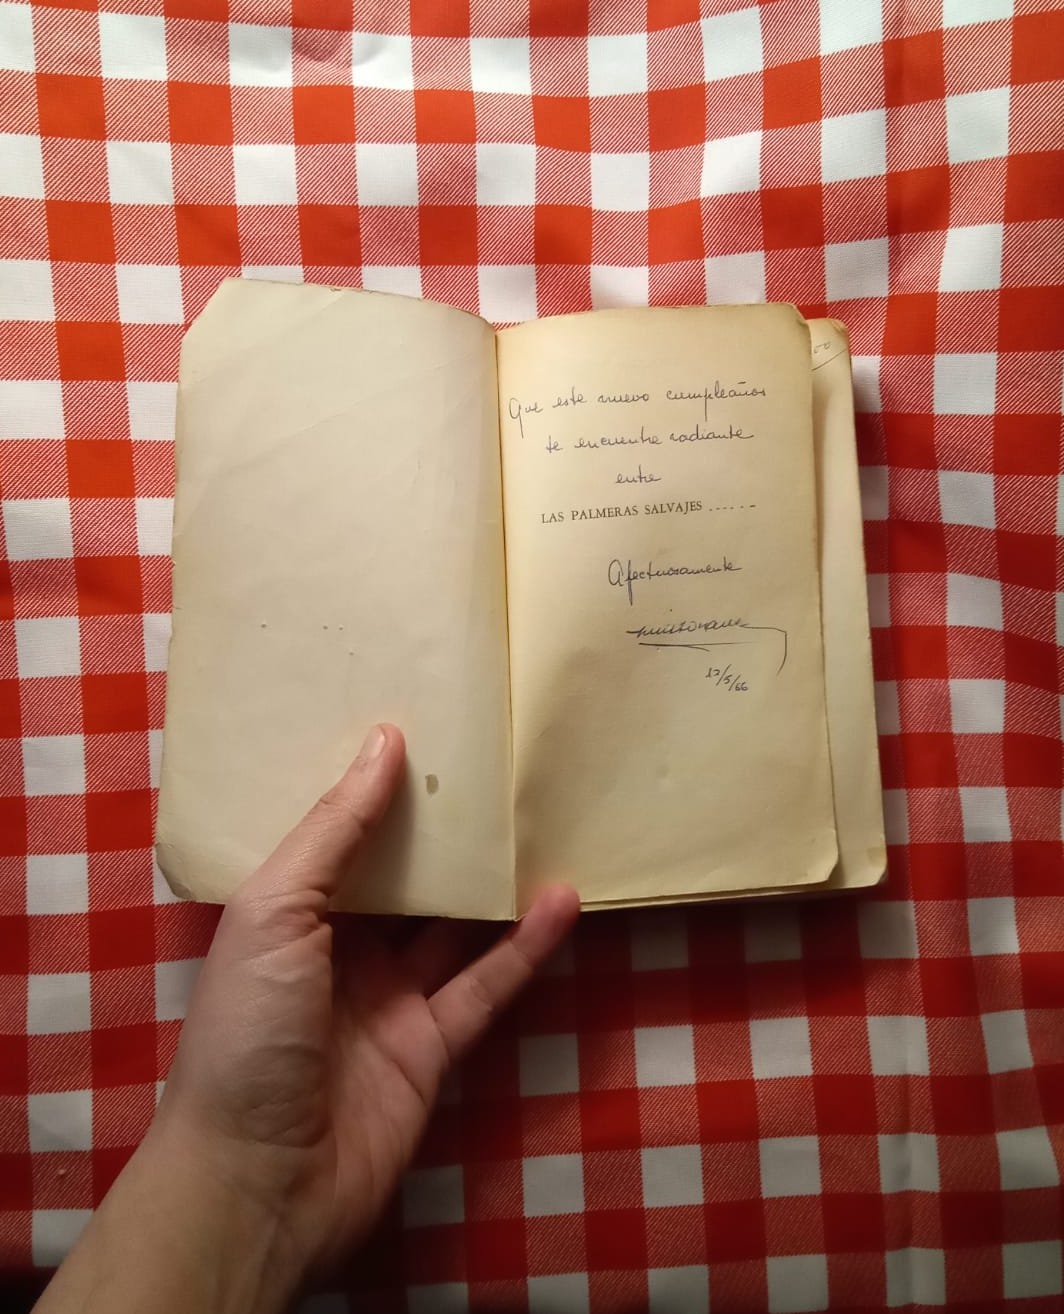 Que este nuevo cumpleaños
te encuentre radiante
entre
LAS PALMERAS SALVAJES ......
Afectuosamente
12/5/66